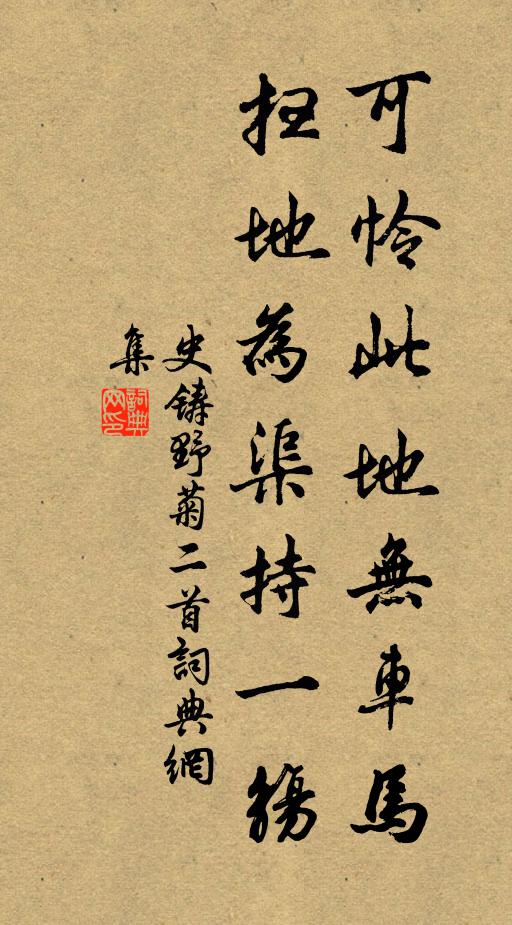 可怜此地無車馬
扫地為渠持一觴
史鑄野菊二首詞典網
集
詞典
网印